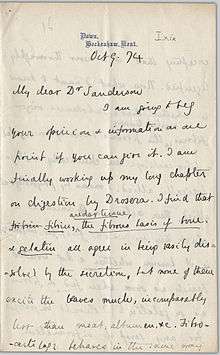 Down,
Beckenham, Kent.
Oct 9. 74
My dear Dr Sanderson
I am going to beg
your opinion & information on one
point if you can give it. I am
finally working up my long chapter
on digestion by Drosera. I find that
areolar tissue,
fibrin, the fibrous basis of bone,
& gelatin all agree in being easily dis-
-solved by the secretion, but none of them
excite the leaves much, incomparably
less than meat, albumen, &c. Fibro-
-cartilage behaves in the same way